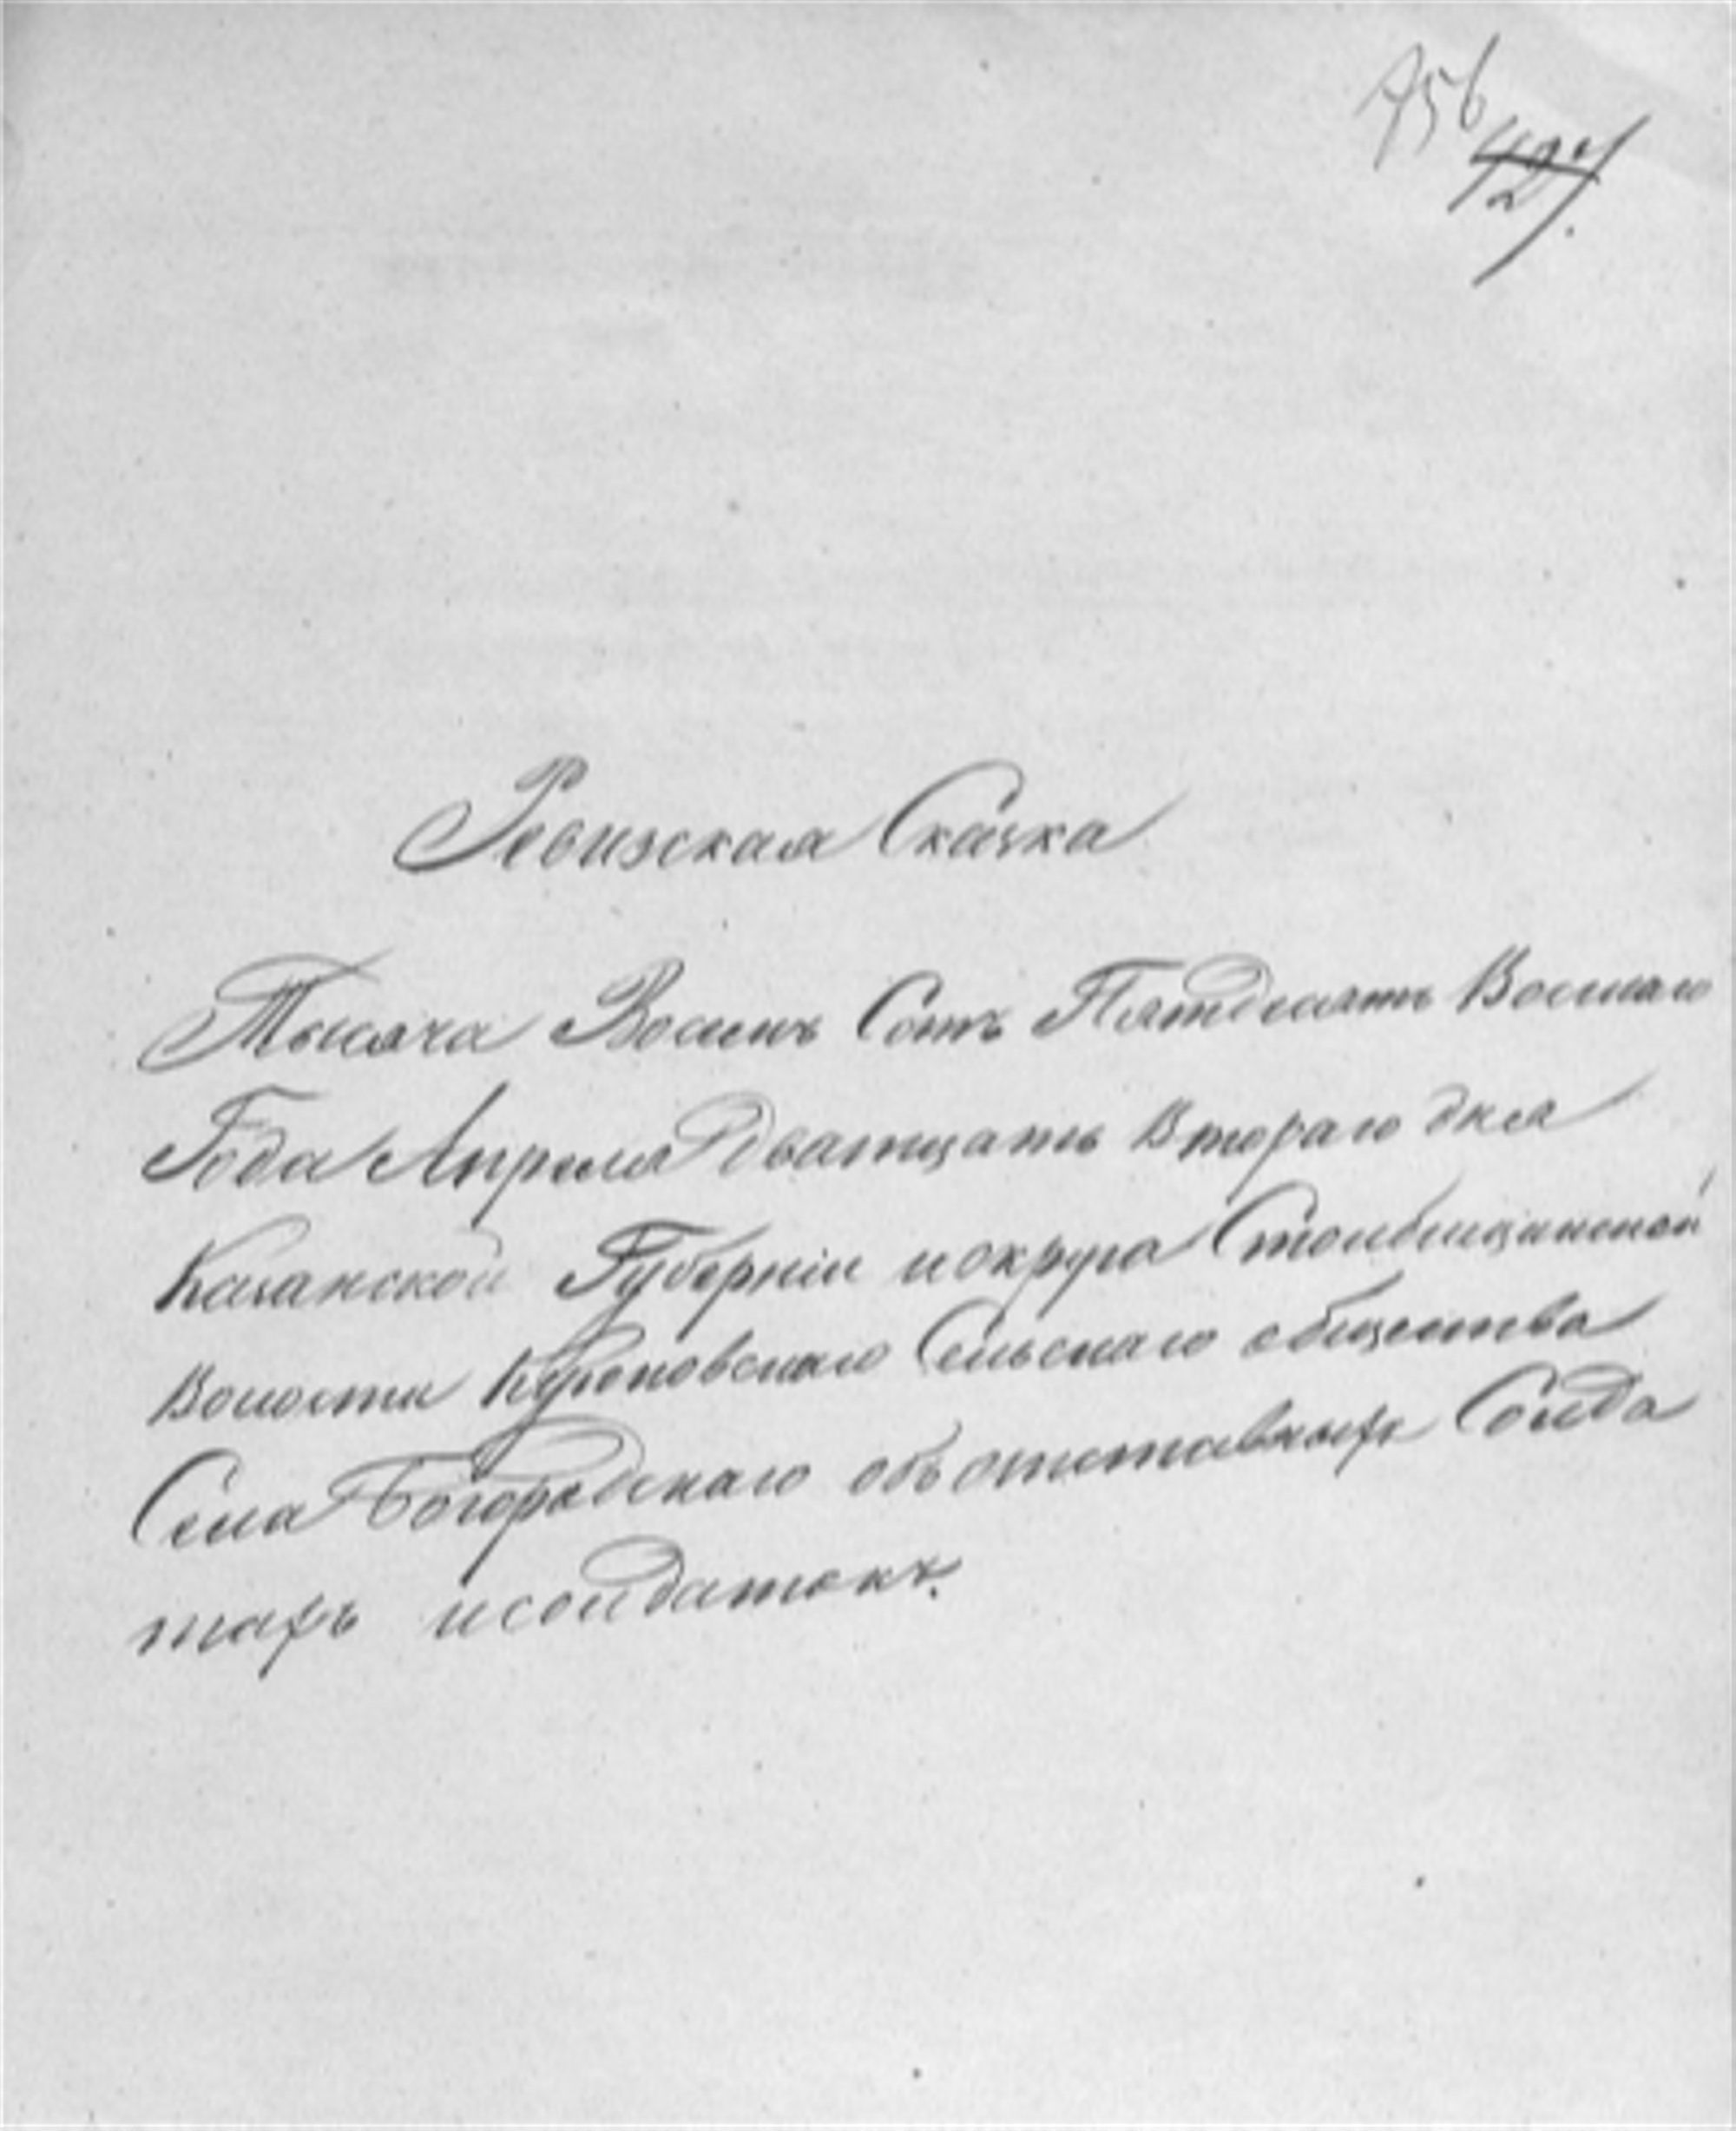 756
427.
Ревизская Скаска
Тысяча Восемь Сотъ Пятдесятъ Восмаго
Года Апреля дватцать Втораго дня
Казанской Губерніи и округа Столбищинской
Волости Кукеповскаго Сельскаго общества
Села Богородскаго объ отставныхъ Солда
тахъ и солдаткъ.